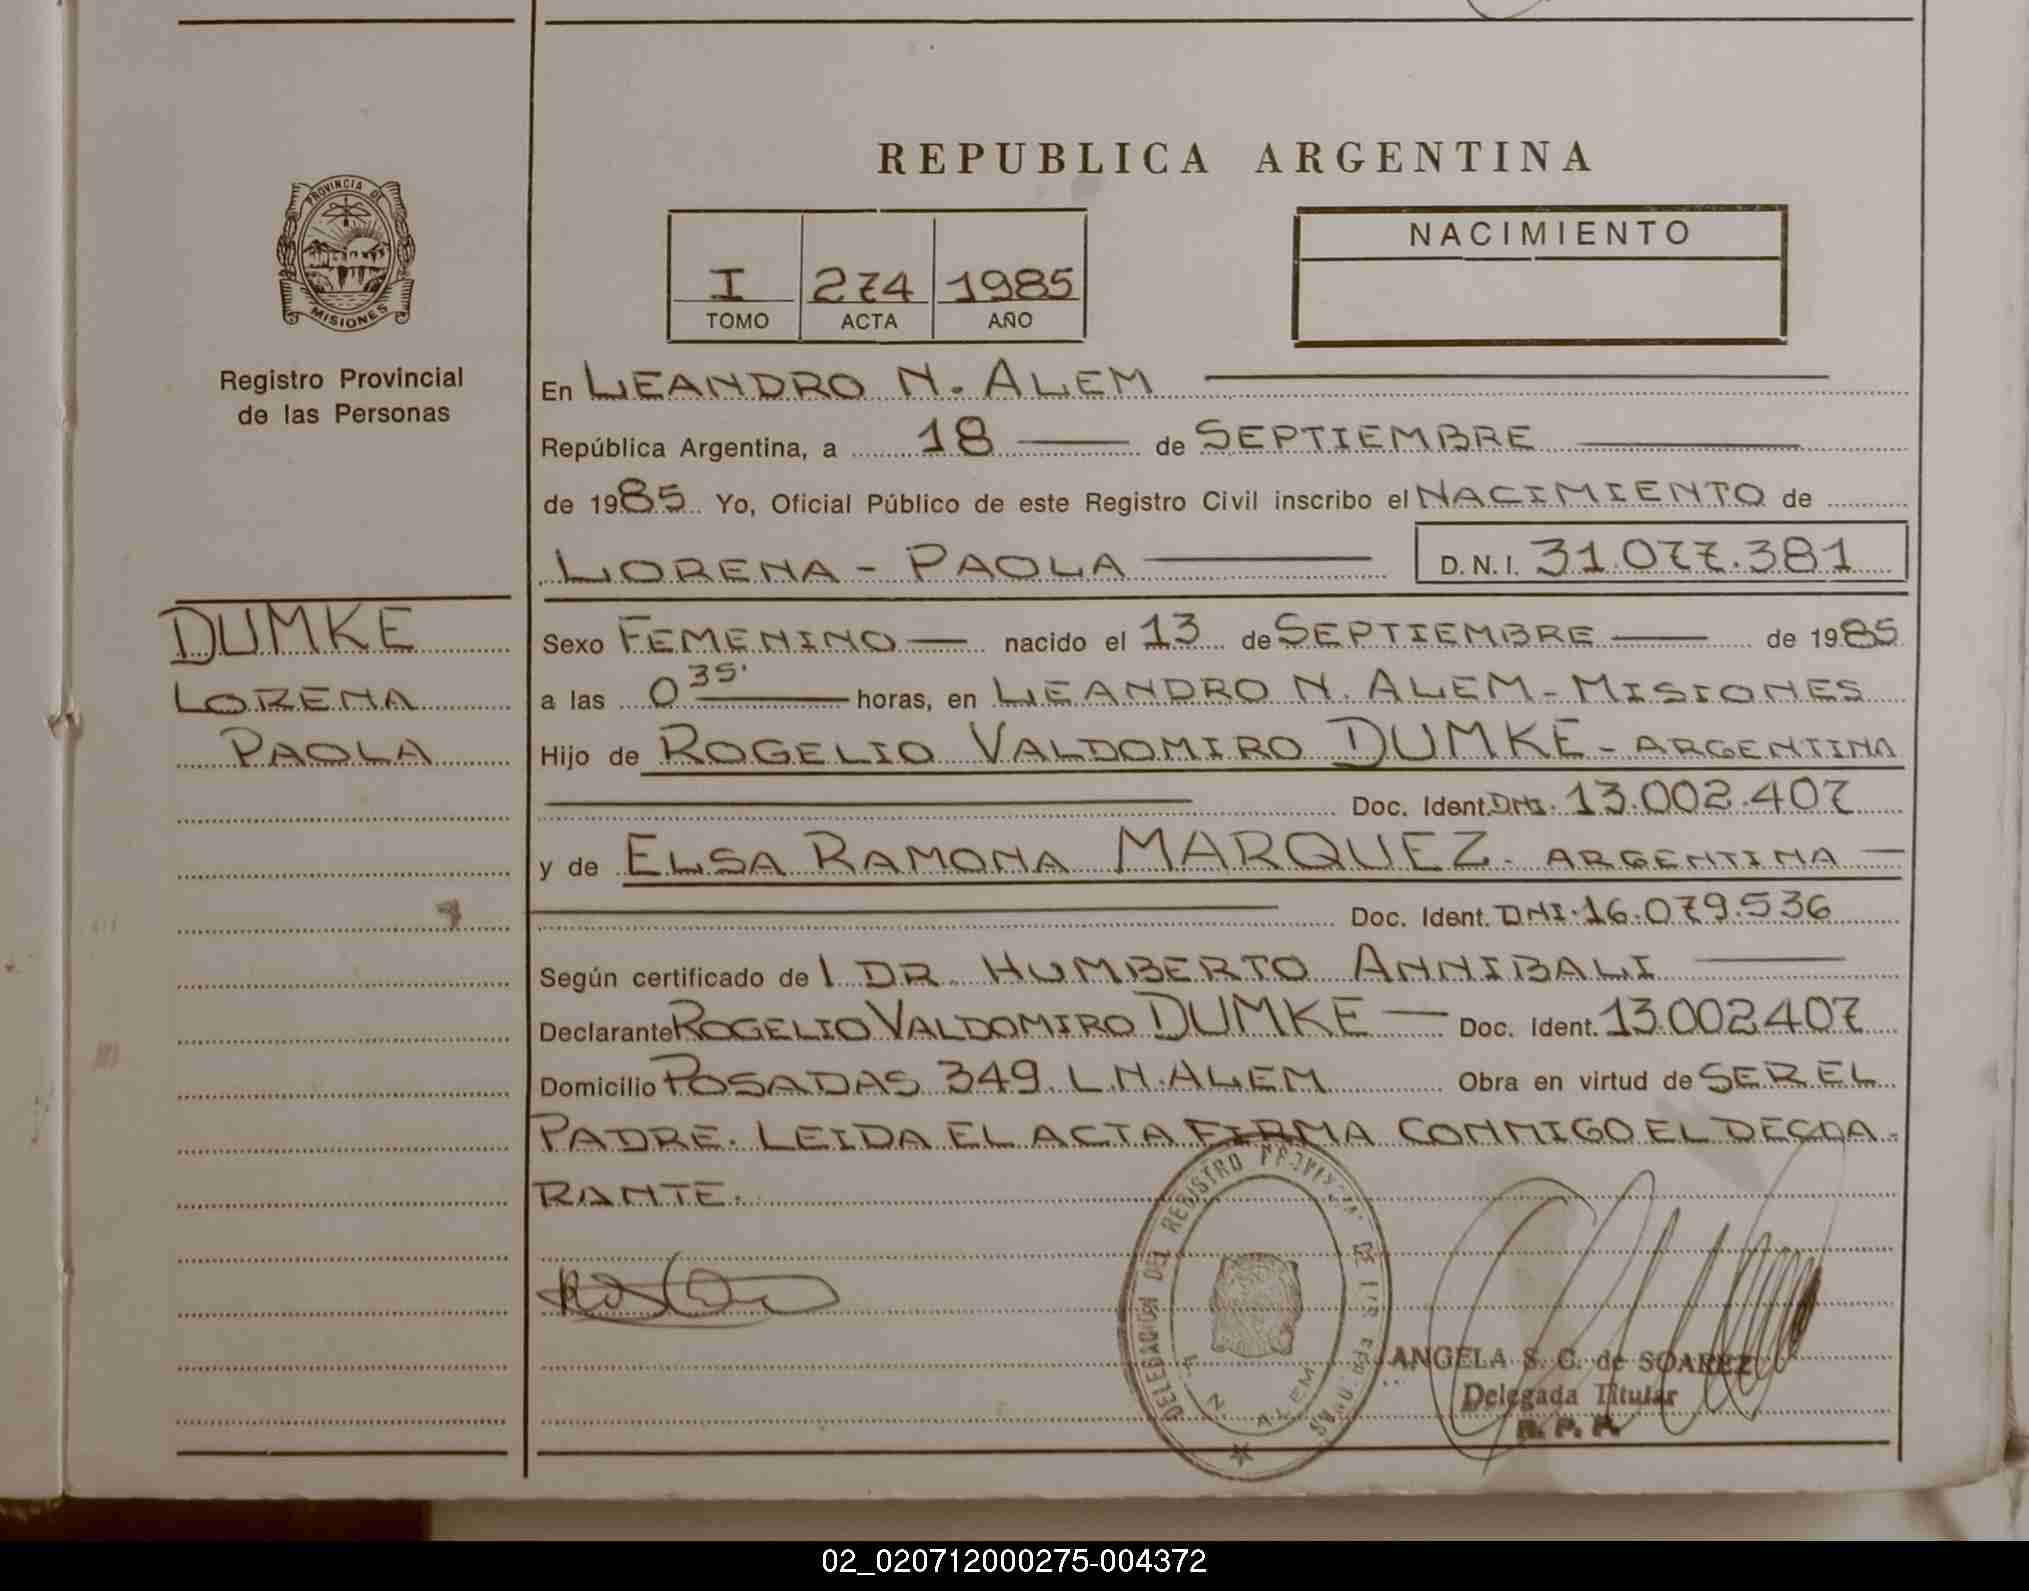 REPUBLICA ARGENTINA
PROVINCIA DE
MISIONES
Registro Provincial
de las Personas
I 274 1985
TOMO ACTA AÑO
NACIMIENTO
En LEANDRO N. ALEM
República Argentina, a 18 de SEPTIEMBRE
de 1985 Yo, Oficial Público de este Registro Civil inscribo el NACIMIENTO de
LORENA - PAOLA D.N.I. 31.077.381
DUMKE
LORENA
PAOLA
Sexo FEMENINO nacido el 13 de SEPTIEMBRE de 1985
a las 0 35' horas, en LEANDRO N. ALEM - MISIONES
Hijo de ROGELIO VALDOMIRO DUMKE - ARGENTINA
Doc. Ident. DNI. 13.002.407
y de ELSA RAMONA MARQUEZ. ARGENTINA
Doc. Ident. DNI. 16.079.536
Según certificado de l DR. HUMBERTO ANNIBALI
Declarante ROGELIO VALDOMIRO DUMKE Doc. Ident. 13.002407
Domicilio POSADAS 349. L.N.ALEM Obra en virtud de SER EL
PADRE. LEIDA EL ACTA FIRMA CONMIGO EL DECLA-
RANTE.
DELEGACION DEL REGISTRO PROVINCIAL DE LAS PERSONAS
L. N. ALEM
ANGELA S. C. de SOAREZ
Delegada Titular
R. P. P.
02_020712000275-004372